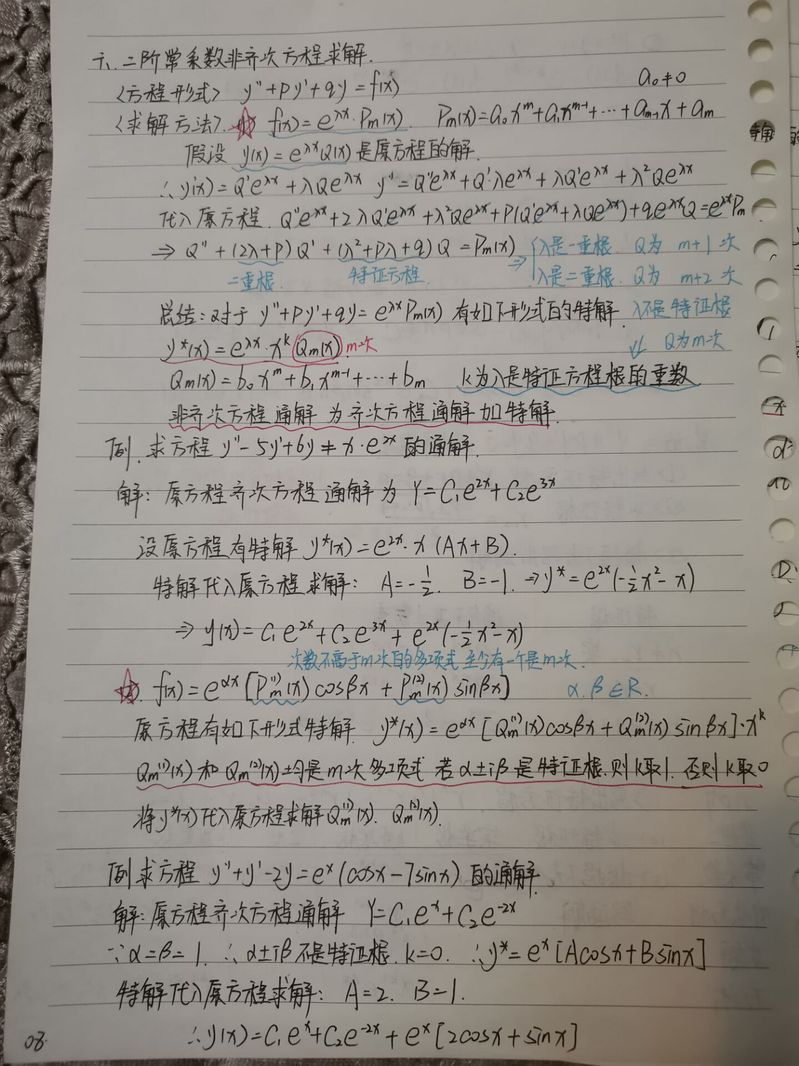 六.二阶常系数非齐次方程求解.
<方程形式> y''+py'+qy=f(x) a₀≠0
<求解方法>. ☆ f(x)=e^{λx}·Pm(x) Pm(x)=a₀x^m+a₁x^{m-1}+…+a_{m-1}x+a_m
假设 y(x)=e^{λx}Q(x) 是原方程的解.
∴y'(x)=Q'e^{λx}+λQe^{λx} y''=Q''e^{λx}+Q'λe^{λx}+λQ'e^{λx}+λ²Qe^{λx}
代入原方程. Q''e^{λx}+2λQ'e^{λx}+λ²Qe^{λx}+p(Q'e^{λx}+λQe^{λx})+qe^{λx}Q=e^{λx}Pm
⇒ Q''+(2λ+p)Q'+(λ²+pλ+q)Q=Pm(x) ⇒ {λ是一重根. Q为 m+1次
二重根. 特征方程. λ是二重根. Q为 m+2次
总结:对于 y''+py'+qy=e^{λx}Pm(x) 有如下形式的特解. λ不是特征根
y*(x)=e^{λx}·x^k Qm(x) m次 ↓ Q为m次
Qm(x)=b₀x^m+b₁x^{m-1}+…+b_m k为λ是特征方程根的重数
非齐次方程通解为齐次方程通解加特解.
例.求方程 y''-5y'+6y=x·e^{2x} 的通解.
解:原方程齐次方程通解为 Y=C₁e^{2x}+C₂e^{3x}
设原方程有特解 y*(x)=e^{2x}·x(Ax+B).
特解代入原方程求解: A=-1/2. B=-1. ⇒y*=e^{2x}(-1/2x²-x)
⇒ y(x)=C₁e^{2x}+C₂e^{3x}+e^{2x}(-1/2x²-x)
次数不高于m次的多项式 至少有一个是m次.
☆. f(x)=e^{αx}[Pm^{(1)}(x)cosβx+Pm^{(2)}(x)sinβx] α.β∈R.
原方程有如下形式特解. y*(x)=e^{αx}[Qm^{(1)}(x)cosβx+Qm^{(2)}(x)sinβx]·x^k
Qm^{(1)}(x)和Qm^{(2)}(x)均是m次多项式 若α±iβ是特征根.则k取1. 否则k取0
将y*(x)代入原方程求解Qm^{(1)}(x). Qm^{(2)}(x).
例求方程 y''+y'-2y=e^x(cosx-7sinx) 的通解.
解:原方程齐次方程通解 Y=C₁e^x+C₂e^{-2x}
∵α=β=1. ∴α±iβ不是特征根. k=0. ∴y*=e^x[Acosx+Bsinx]
特解代入原方程求解: A=2. B=1.
∴y(x)=C₁e^x+C₂e^{-2x}+e^x[2cosx+sinx]
08.